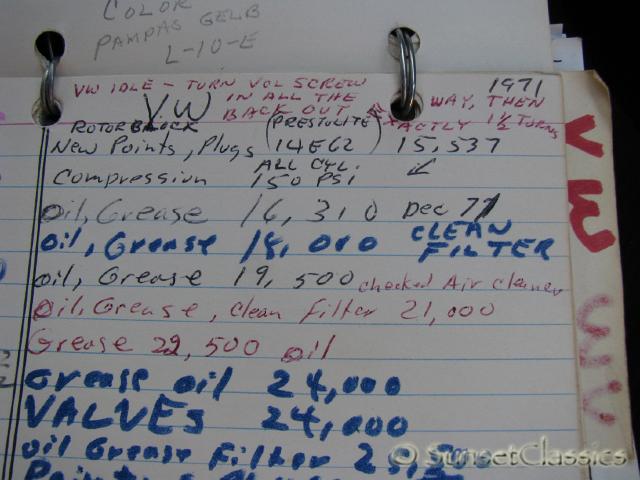 COLOR
PAMPAS GELB
L-10-E
VW IDLE - TURN VOL SCREW
IN ALL THE WAY, THEN
BACK OUT EXACTLY 1½ TURNS
1971
VW
ROTOR BLOCK (PRESTOLITE)
New Points, Plugs 14E62 15,537
ALL CYL.
Compression 150 PSI
Oil, Grease 16,310 Dec 71
oil, Grease 18,000 CLEAN FILTER
oil, Grease 19,500 checked Air cleaner
oil, Grease, clean filter 21,000
Grease 22,500 oil
Grease oil 24,000
VALVES 24,000
oil Grease Filter
VW
© SunsetClassics